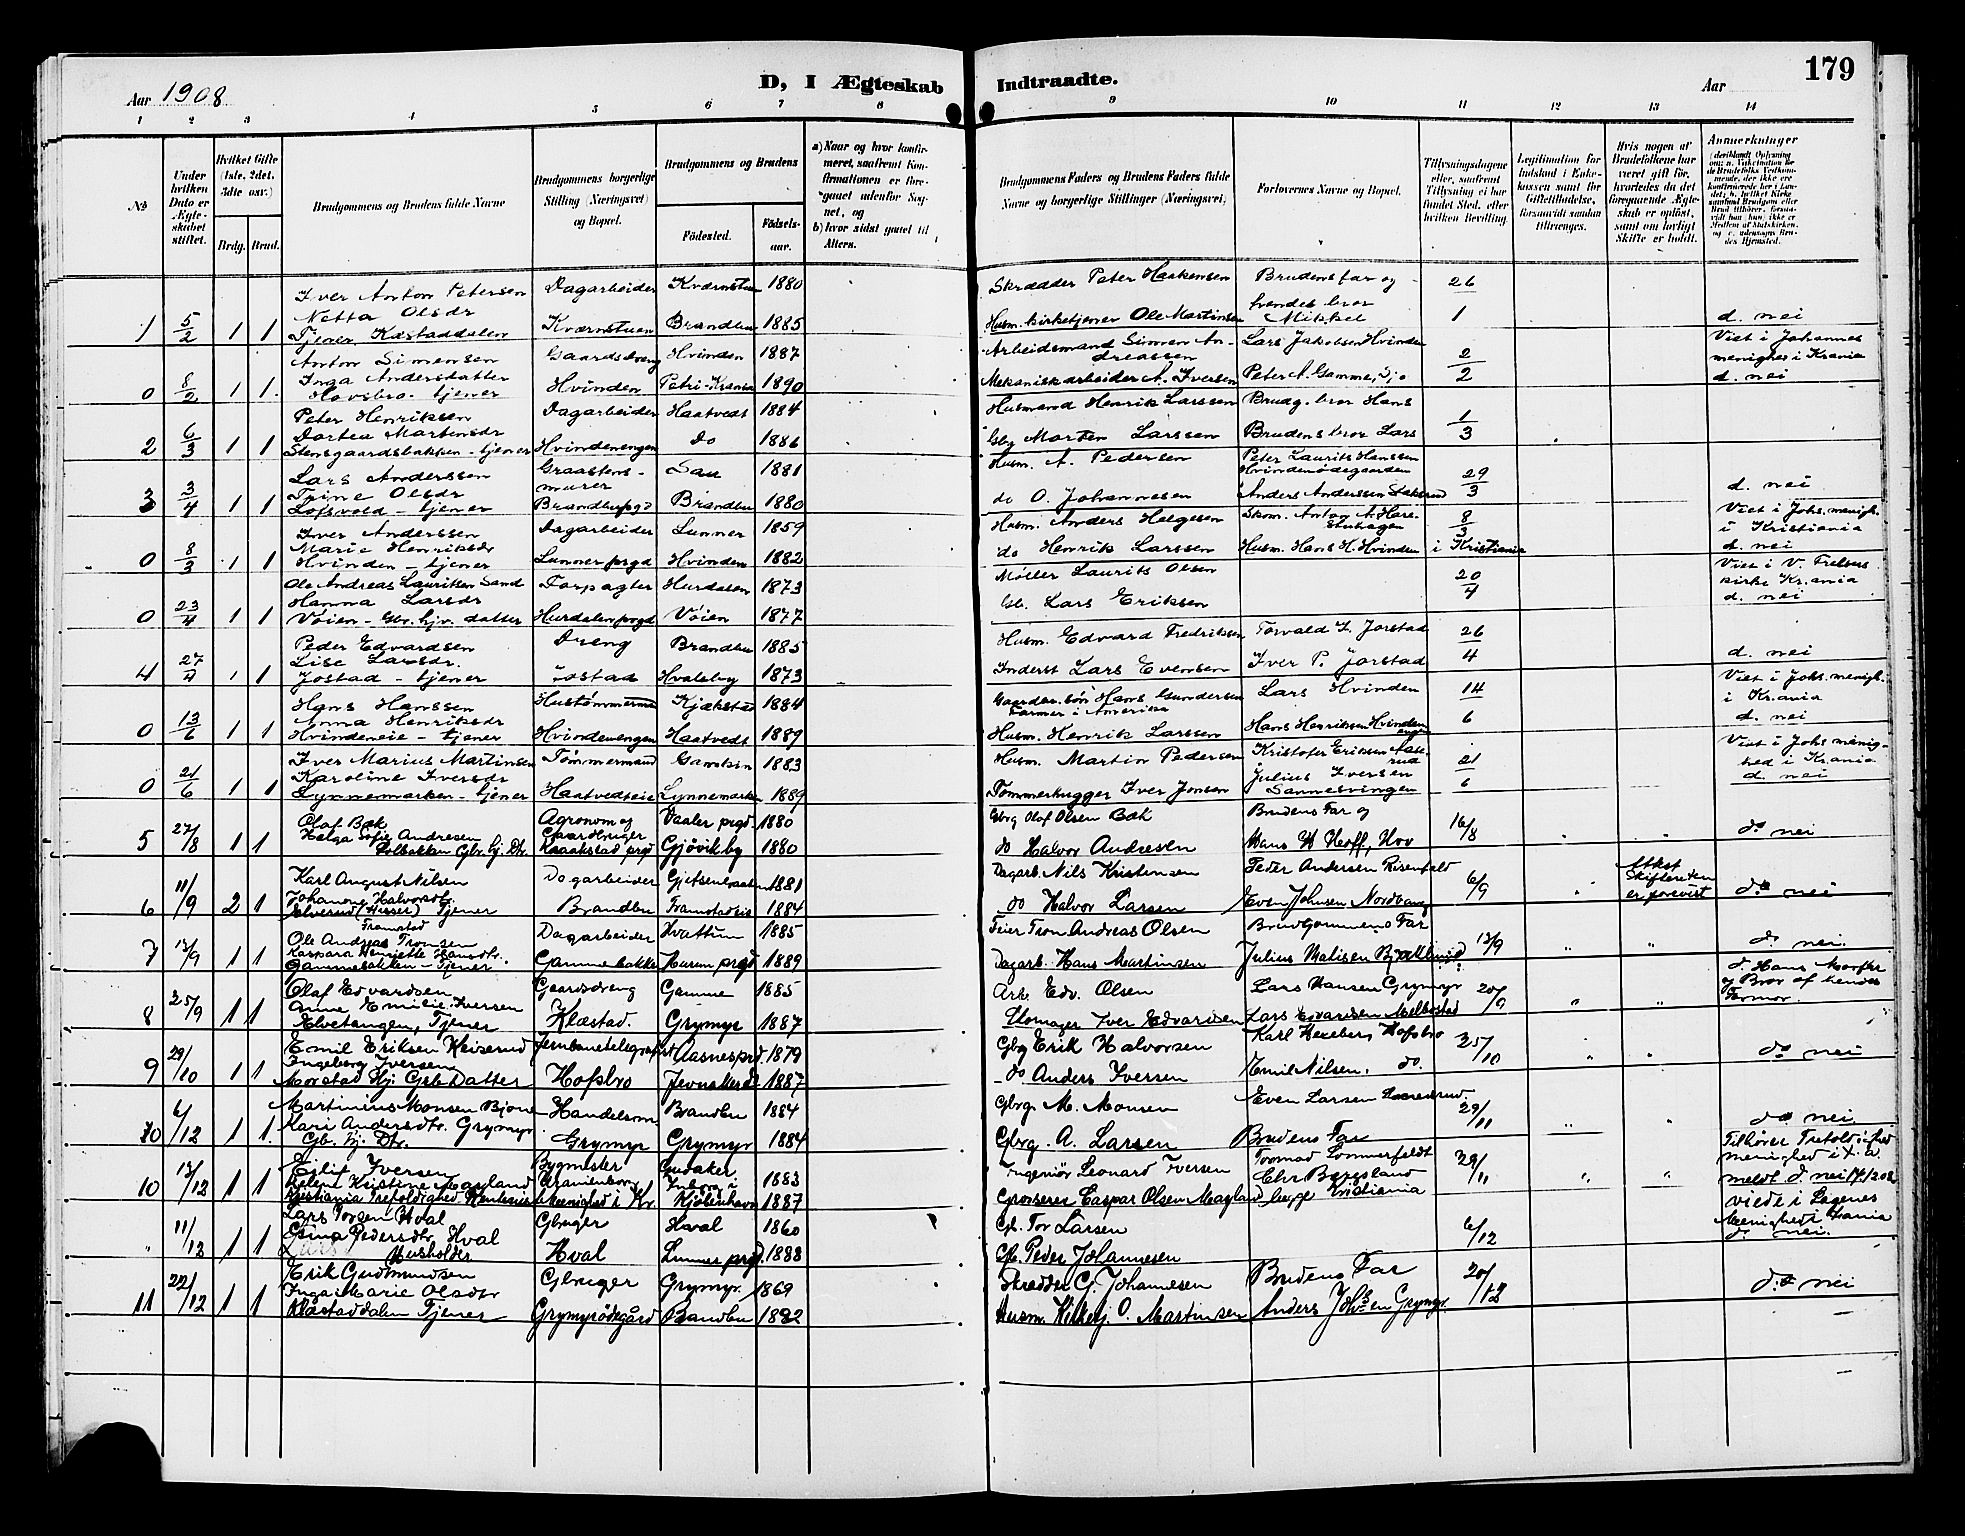 Aar 1908
D, I Ægteskab Indtraadte.
Aar
179
1 2 3 4 5 6 7 8 9 10 11 12 13 14
No
Under hvilken Dato er Ægteskabet stiftet.
Hvilket Gifte (1ste, 2det, 3dte osv.)
Brdg. Brud.
Brudgommens og Brudens fulde Navne
Brudgommens borgerlige Stilling (Næringsvei) og Bopæl.
Brudgommens og Brudens
Födested.
Födselsaar.
a) Naar og hvor konfirmeret, saafremt Konfirmationen er foregaaet udenfor Sognet, og
b) hvor sidst gaaet til Alters.
Brudgommens Faders og Brudens Faders fulde Navne og borgerlige Stillinger (Næringsvei)
Forlovernes Navne og Bopæl.
Tillysningsdagene eller, saafremt Tillysning ei har fundet Sted, efter hvilken Bevilling.
Legitimation for Indskud i Enkekassen samt for Giftetilladelse, forsaavidt saadan tiltrænges.
Hvis nogen af Brudefolkene har været gift för, hvorledes da det foregaaende Ægteskab er oplöst, samt om lovligt Skifte er holdt.
Anmærkninger
1 5/2 1 1 Iver Anton Petersen Dagarbeider Kværnstuen 1880 Skrædder Peter Haakensen Brudens far og 26
Netta Olsdr hendes bror
Tjener Kæstaddalen Kværnstuen Brandbu 1885 Husm. kirketjener Ole Martinsen Mikkel 1 d. nei
0 8/2 1 1 Anton Simensen Gaardsdreng Hvinden 1887 Arbeidsmand Simen Andreassen Lars Jakobsen Hvinden 2/2 Viet i Johannes
Inga Andersdatter menighed i Krania
Hovsbro. tjener Hvinden Petri-Krania 1890 Mekaniskarbeider A. Iversen Peter A. Gamme, d. nei
2 6/3 1 1 Peter Henriksen Dagarbeider Haatvedt 1884 Husmand Henrik Larssen Brudg. bror Hans 1/3
Dortea Martinsdr
Stensgaardsbakken - tjener Hvindenengen do 1886 Gbr Morten Larssen Brudens bror Lars
3 3/4 1 1 Lars Anderssen Graastensmurer 1881 Husm. A. Pedersen Peter Laurits Hanssen Hvindenödegaarden 29/3
Trine Olsdr
Lofsvold - tjener Brandbu pgd Brandbu 1880 do O. Johannesen Anders Anderssen d. nei
0 8/3 1 1 Iver Anderssen Dagarbeider Lunner 1859 Husm. Anders Helgesen Skom. Anton A. 8/3 Viet i Johs. menigh.
Marie Henriksdr i Kristiania
Hvinden - tjener Lunner prgd Hvinden 1882 do Henrik Larssen Husm. Hans H. Hvinden i Kristiania d. nei
0 23/4 1 1 Ole Andreas Lauritsen Sand Forpagter Hurdalen 1873 Møller Laurits Olsen 20/4 Viet i V. Frelsers
Hanna Larsdr kirke Krania
Vöien - Gbr. hjv. datter Hurdalen prgd Vöien 1877 Gb. Lars Eriksen d. nei
4 27/4 1 1 Peder Edvardsen Dreng Brandbu 1885 Husm. Edvard Fredriksen Torvald I. Jorstad 26
Lise Larsdr.
Jostad - tjener Jostad Hvalsby 1873 Inderst Lars Evensen Iver P. Jorstad 4 d. nei
0 13/6 1 1 Hans Hanssen Hustömmermand Kjækstad 1884 Gaardbr. sön Hans Gundersen Farmer i Amerika Lars Hvinden 14 Viet i Johs. menigh.
Anna Henriksdr i Krania
Hvindeneie - tjener Hvindenengen Haatvedt 1889 Husm. Henrik Larssen Hans Henriksen Hvindenenge 6 d. nei
0 21/6 1 1 Iver Marius Martinsen Tömmermand 1883 Husm. Martin Pedersen Kristofer Eriksen 21 Viet i Johs menighed i Krania
Karoline Iversdr Julius Iversen
Lynnemarken - tjener Haatvedteie Lynnemarken 1889 Tömmerhugger Iver Jonsen Sannesvingen 6 d. nei
5 27/8 1 1 Olaf Bæk Agronom og Vaaler prgd. 1880 Gbrg Olaf Olsen Bæk Brudens Far og 16/8
Helga Sofie Andresen Gaardbruger
Gbr. hj. Dtr. Kraakstad prgd Gjövik by 1880 do Halvor Andresen Hans H. Hov do nei
6 11/9 2 1 Karl August Nilsen Dagarbeider 1881 Dagarb. Nils Kristensen Peder Andersen Risenfald 6/9 " Attest Skifteretten er forevist do nei
Johanne Halvorsdtr.
Alverud (Husser) Tjener Brandbu Framstadeie 1884 do Halvor Larsen Even Johnsen Nordvang
Framstad
7 13/9 1 1 Ole Andreas Tronsen Dagarbeider Hvattum 1885 Feier Tron Andreas Olsen Brudgommens Far 13/9 " " do nei.
Kaspara Henriette Hansdtr.
Gammebakken - Tjener Gammebakke Hurum prgd 1889 Dagarb. Hans Martinsen Julius Malisen
8 25/9 1 1 Olaf Edvardsen Gaardsdreng Gamme 1885 Arb. Edv. Olsen Lars Hansen Grymyr 20/9 " " d. Hans Morfar
Anne Emilie Iversen og Bror af hendes
Alvetangen, Tjener Klæstad. Grymyr 1887 Skomager Iver Edvardsen Lars Edvardsen Melbostad Farmor.
9 29/10 1 1 Emil Eriksen Heiserud Jernbanetelegrafist Aasnes prd. 1879 Gbrg Erik Halvorsen Karl Hofsbro 25/10 " " do nei
Ingeborg Iversen
Morstad Hj. Gbr. Datter Hofsbro Jevnaker 1887 do Anders Iversen Emil Nilsen. do.
10 6/12 1 1 Martinius Monsen Bjone Handelsm. Brandbu 1884 Gbrg. M. Monsen Even Larsen 29/11 " " do nei
Kari Andersdtr. Grymyr
Gb. hj. Dtr. Grymyr Grymyr 1884 Gbrg. A. Larsen Brudens Far
10 13/12 1 1 Eilif Iversen Bygmester 1883 Ingeniör Leonard Iversen Tormod Lommerfeldt 29/11 " " Tilhörer Trefoldighed
Helena Kristine Mayland Uranienborg Chr Bergsland menighed i
Kristiania Trefoldighed Menighed i Kr. Kjöbenhavn 1887 Grosserer Caspar Olsen Mayland begge Kristiania meldt d. nei 17/12 08
viede i Sagenes
" 11/12 1 1 Lars Torsen Hval Gbruger Hval 1860 Gb. Tor Larsen 6/12 Menighed Krania
Gina Pedersdtr. Hval
Husholder Hval Lunner prgd. 1888 Gb. Peder Johannesen d. nei.
11 22/12 1 1 Erik Gudmundsen Gbruger Grymyr. 1869 Skrædder G. Johannesen Brudens Far 20/12 do nei
Inga Marie Olsdtr
Klæstaddalen Tjener Grymyrödegård Brandbu 1882 Husm. Kirketj. O. Martinsen Anders Johsen Grymyr.